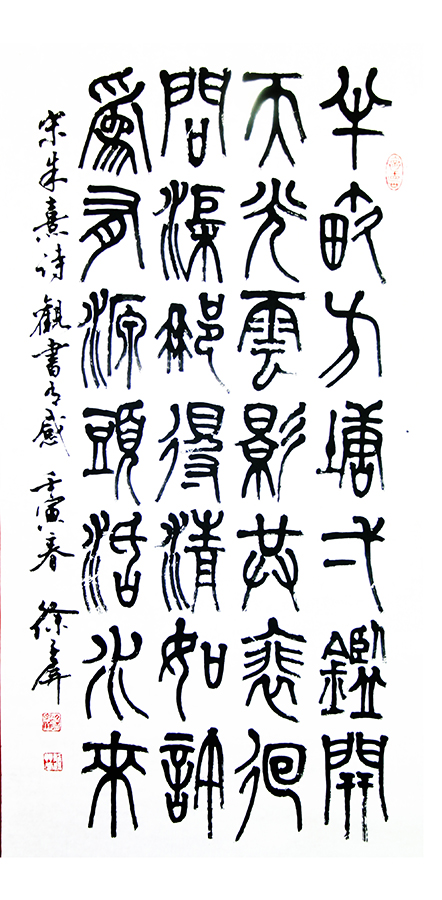 半畝方塘弌鑑開
天光雲影共裵徊
問渠那得清如許
爲有源頭活水來
宋朱熹诗觀書有感 壬寅春 徐屏